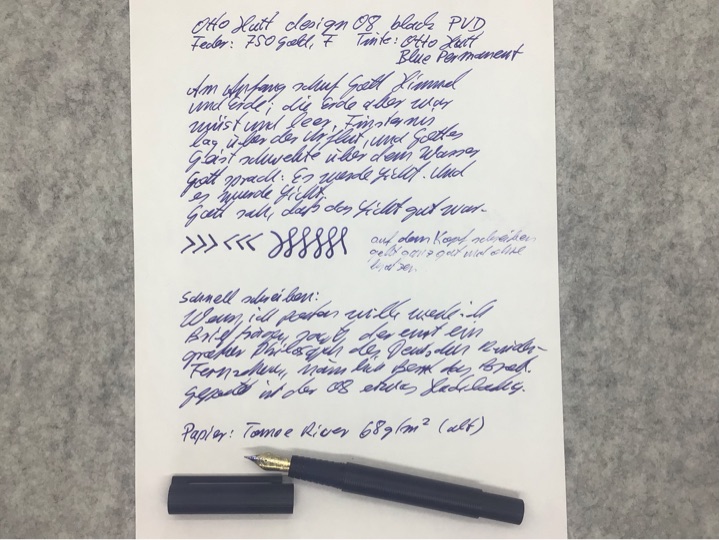 Otto Hutt design 08 black PVD
Feder: 750 Gold, F Tinte: Otto Hutt
Blue Permanent
Am Anfang schuf Gott Himmel
und Erde; die Erde aber war
wüst und leer, Finsternis
lag über der Urflut, und Gottes
Geist schwebte über dem Wasser
Gott sprach: Es werde Licht. Und
es wurde Licht.
Gott sah, dass das Licht gut war.
auf dem Kopf schreiben
geht ganz gut und ohne
Kratzen.
Schnell schreiben:
Wenn ich
Briefträger, sagte der einst ein
großer Philosoph des Deutschen Kinder-
Fernsehens, nämlich Bernd das Brot.
ist der 08 etwas
Papier: Tomoe River 68g/m² (alt)